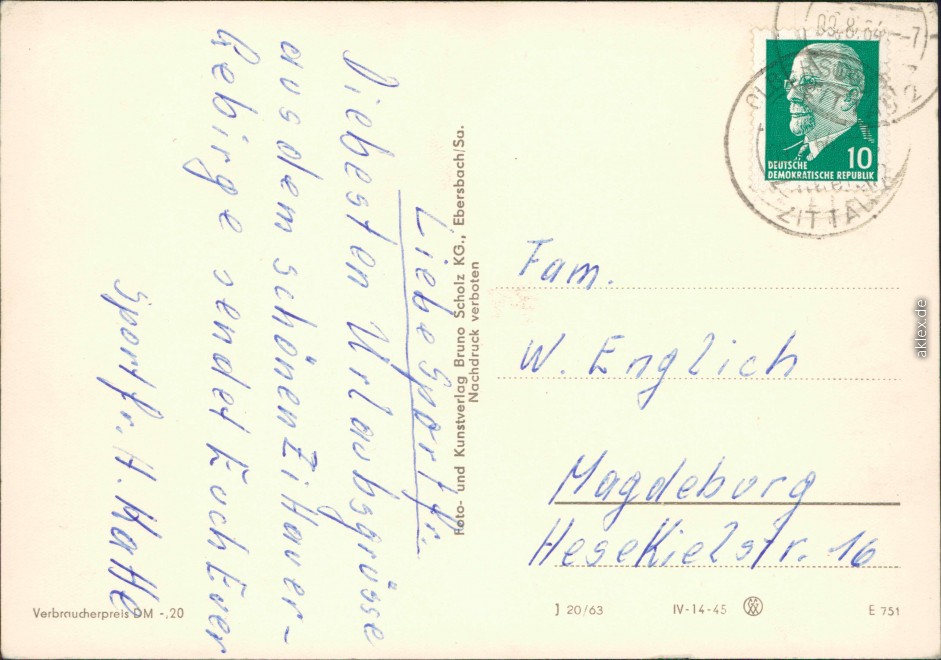 Liebe Sportfr.
Diebesten Urlaubsgrüsse
aus dem schönen Zittauer-
Gebirge sendet Euch Euer
Sportfr. H. Katte
Foto- und Kunstverlag Bruno Scholz KG., Ebersbach/Sa.
Nachdruck verboten
ZITTAU 2
ZITTAU
10
DEUTSCHE
DEMOKRATISCHE REPUBLIK
Fam.
W. Englich
Magdeburg
HeseKielstr. 16
Verbraucherpreis DM -.20
J 20/63
IV-14-45
E 751
aklex.de